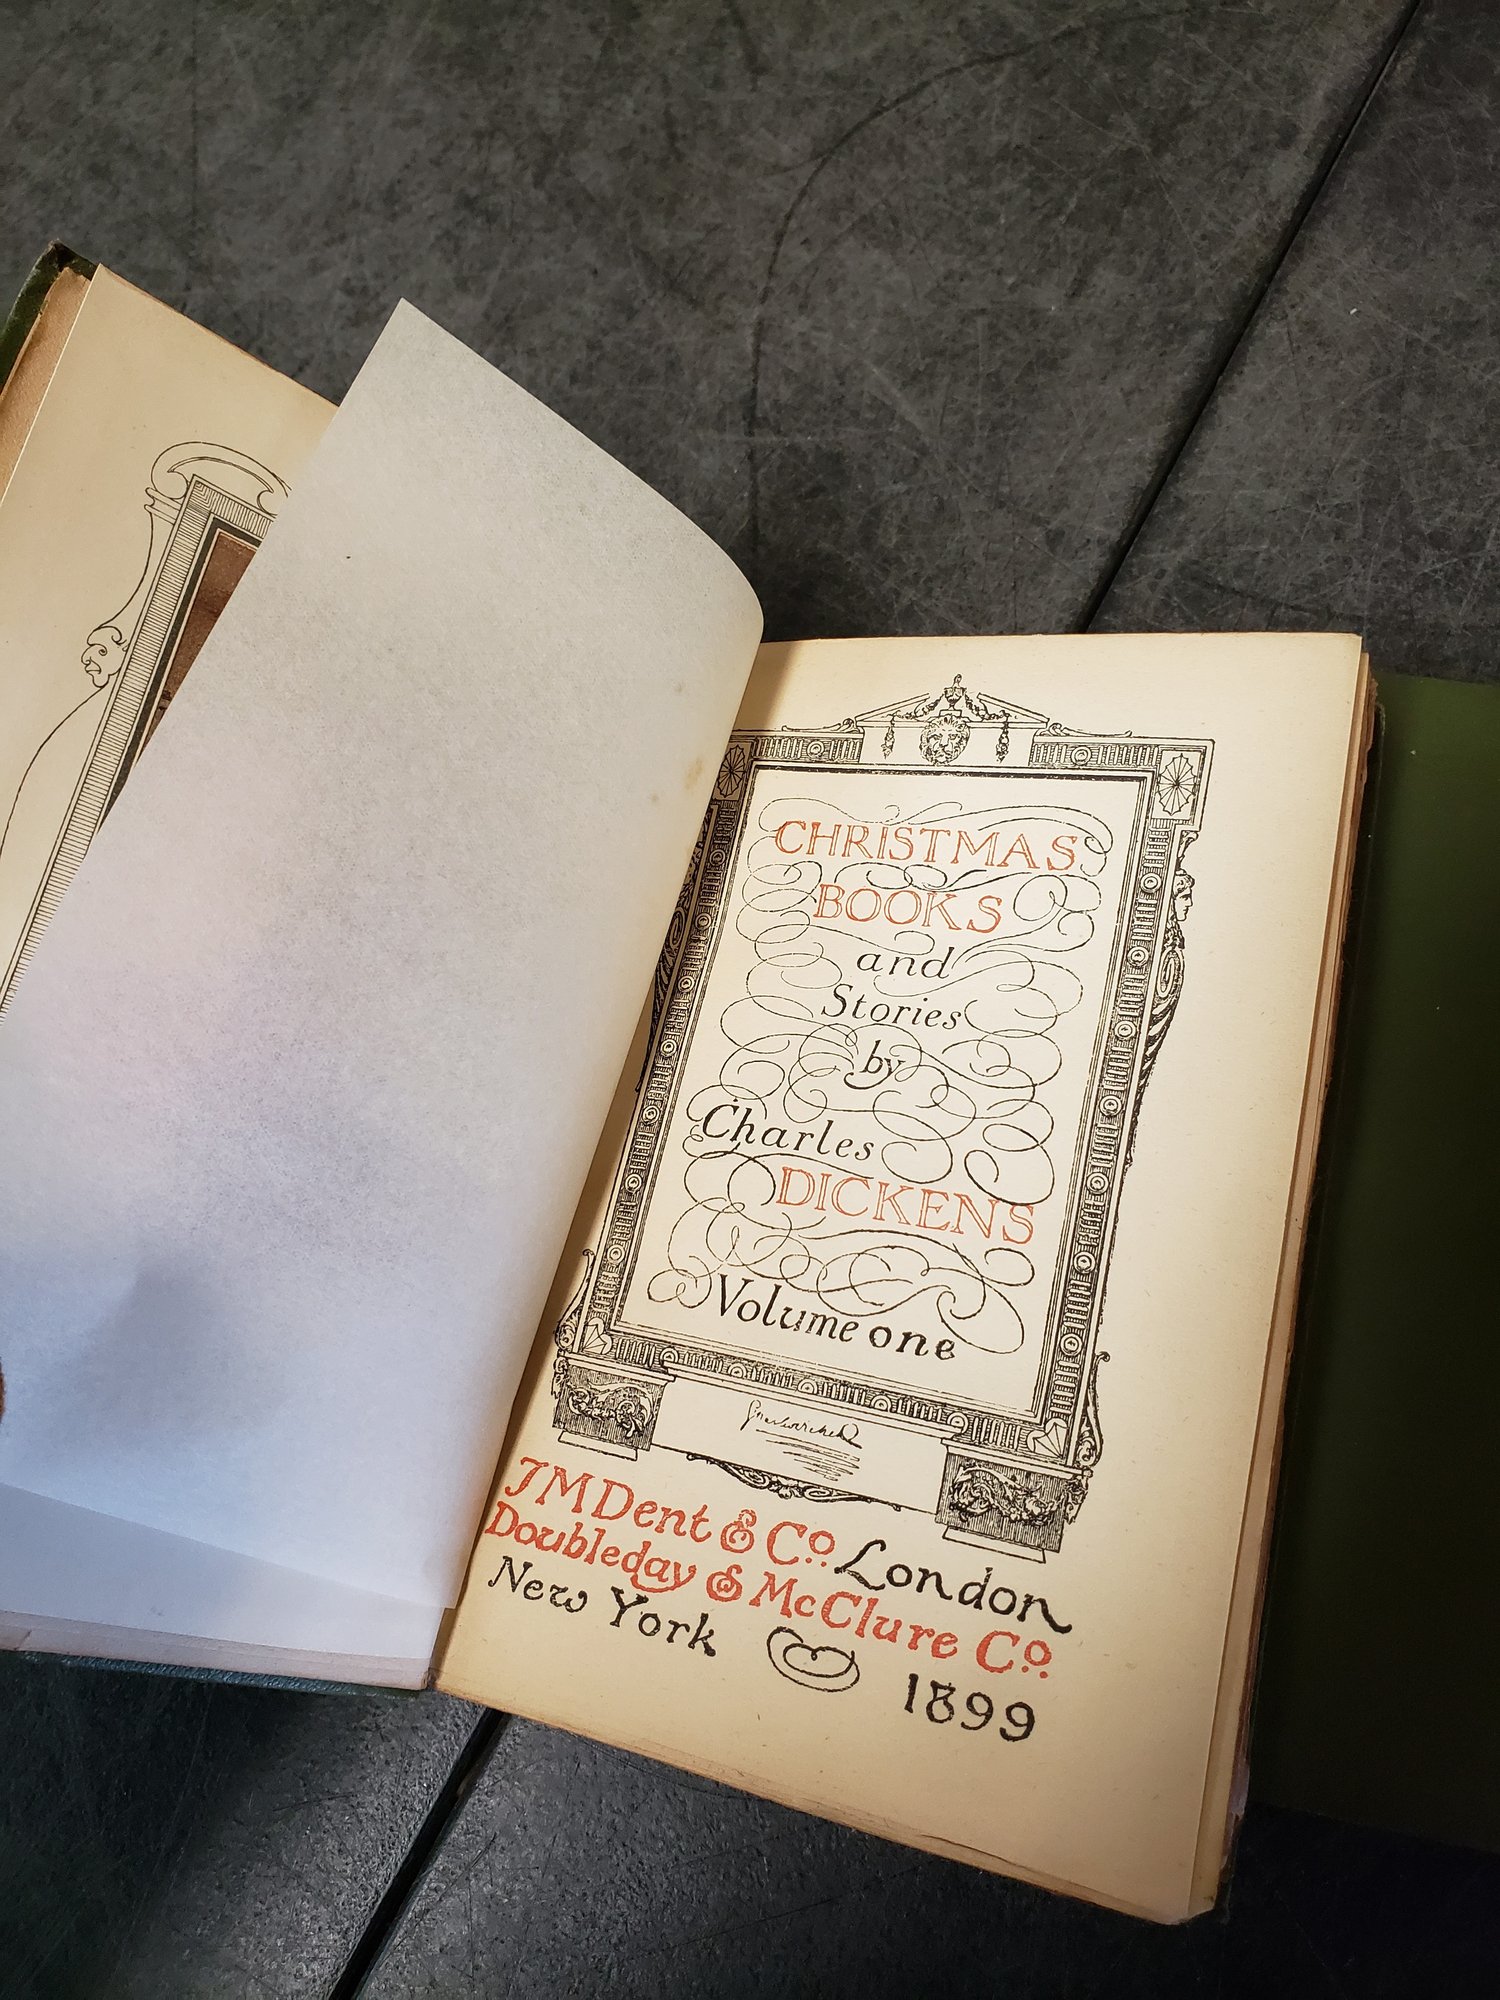 CHRISTMAS
BOOKS
and
Stories
by
Charles
DICKENS
Volume one
JM Dent & Co. London
Doubleday & McClure Co.
New York 1899